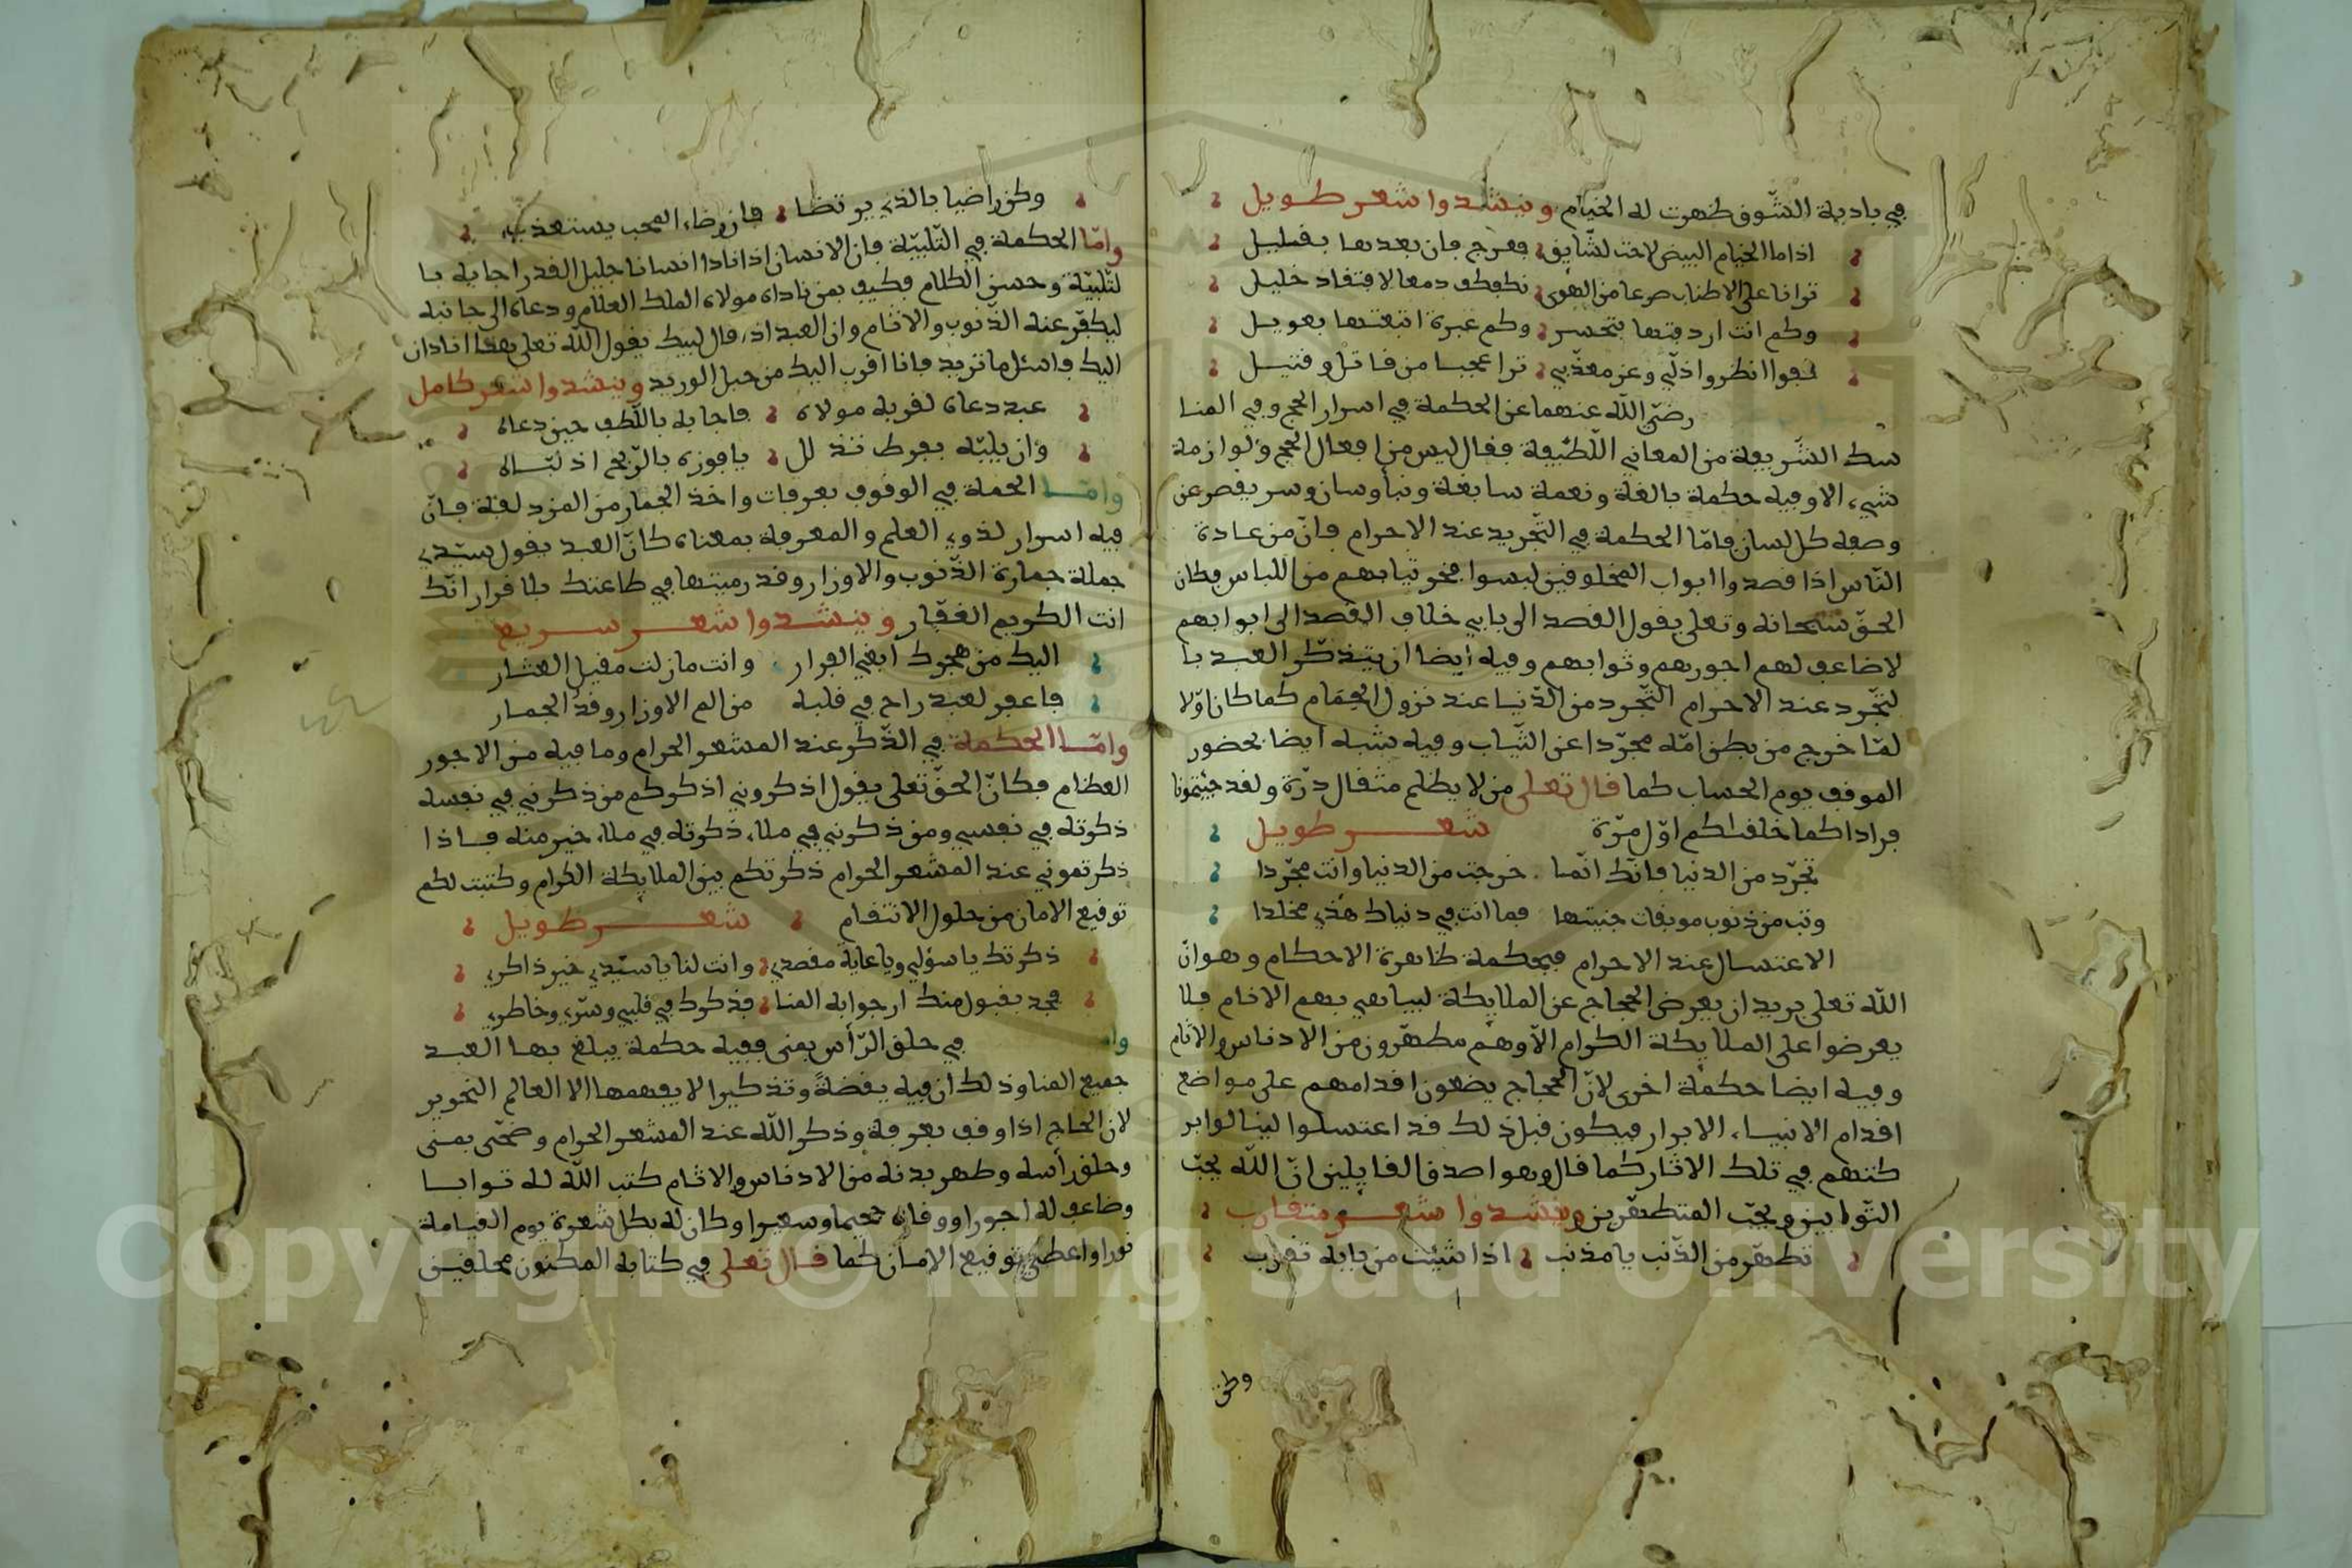 في بادية الشّوق ظهرت له الخيام وينشدوا شعر طويل
اذا ما الخيام البيض لاحت لشّايق فعرج فان بعدها بقليل
ترانا على الاطناب صرعا من الهوى نكفكف دمعا لافتقاد خليل
وكم انت اردفتها بتحسر وكم عبرة اتبعتها بعويل
قفوا انظروا ذلّي وعز معذّبي ترا عجبا من قاتل وقتيل
رضي الله عنهما عن الحكمة في اسرار الحج وفي المنا
سك الشّريعة من المعاني اللّطيفة فقال ليس من افعال الحج ولوازمه
شيء الا وفيه حكمة بالغة ونعمة سابغة ونبأ وسان وسر يقصر عن
وصفه كل لسان فامّا الحكمة في التّجريد عند الاحرام فانّ من عادة
النّاس اذا قصدوا ابواب المخلوقين لبسوا فخر ثيابهم من اللباس فكان
الحقّ سبحانه وتعلى يقول القصد الى بابي خلاف القصد الى ابوابهم
لاضاعف لهم اجورهم وثوابهم وفيه ايضا ان يتذكّر العبد با
لتجّرد عند الاحرام التّجرد من الدّنيا عند نزول الحمام كما كان اوّلا
لمّا خرج من بطن امّه مجرّدا عن الثّياب وفيه شبه ايضا بحضور
الموقف يوم الحساب كما قال تعلى من لا يظلم مثقال ذرّة ولقد جئتمونا
فرادا كما خلقنكم اوّل مرّة شعر طويل
تجرّد من الدنيا فانّك انّما خرجت من الدنيا وانت مجرّدا
وتب من ذنوب موبقات جنيتها فما انت في دنياك هذي مخلدا
الاغتسال عند الاحرام فبحكمة ظاهرة الاحكام وهو انّ
الله تعلى يريد ان يعرض الحجاج عن الملايكة ليباهي بهم الانام فلا
يعرضوا على الملايكة الكرام الاّ وهم مطهّرون من الادناس والاثام
وفيه ايضا حكمة اخرى لانّ الحجاج يضعون اقدامهم على مواضع
اقدام الانبياء الابرار فيكون قبل ذلك قد اغتسلوا لينالوا بر
كتهم في تلك الاثار كما قال وهو اصدق القايلين انّ الله يحبّ
التّوابين ويحبّ المتطهّرين وينشدوا شعر متقارب
تطهّر من الذّنب يا مذنب اذا شئت من بابه تقرب
وكن
وكن راضيا بالذي يرتضا فان رضاء المحب يستعذب
وامّا الحكمة في التّلبيّة فان الانسان اذا نادا انسانا جليل القدر اجابه با
لتّلبيّة وحسن الكلام فكيف بمن ناداه مولاه الملك العلام ودعاه الى جانبه
ليكفّر عنه الذّنوب والاثام وان العبد اذا قال لبيك يقول الله تعلى هنا انا دان
اليك واسئل ما تريد فانا اقرب اليك من حبل الوريد وينشدوا شعر كامل
عبد دعاه لقربه مولاه فاجابه باللّطف حين دعاه
وان يلبّه بفرط تذلل يا فوزه بالرّبح اذ لبّاه
وامّا الحمة في الوقوف بعرفات واخذ الجمار من المزدلفة فانّ
فيه اسرار لذوي العلم والمعرفة بمعناه كانّ العبد يقول سيّدي
حملة جمارة الذّنوب والاوزار وقد رميتها في طاعتك بلا فرار انّك
انت الكريم الغفّار وينشدوا شعر سريع
اليك من هجرك ابغي الفرار وانت مازلت مقيل العثار
فاغفر لعبد راح في قلبه من الم الاوزار وقد الجمار
وامّا الحكمة في الذّكر عند المشعر الحرام وما فيه من الاجور
العظام فكانّ الحقّ تعلى يقول اذكروني اذكركم من ذكرني في نفسه
ذكرته في نفسي ومن ذكرني في ملاء ذكرته في ملاء خير منه فاذا
ذكرتموني عند المشعر الحرام ذكرتكم بين الملايكة الكرام وكتبت لكم
توقيع الامان من حلول الانتقام شعر طويل
ذكرتك يا سؤلي ويا غاية مقصدي وانت لنا يا سيّدي خير ذاكر
فجد بقبول منك ارجوا به المنا فذكرك في قلبي وسرّي وخاطري
وا في حلق الرّأس بمنى ففيه حكمة يبلغ بها العبد
جميع المنا وذلك ان فيه يقضةً وتذكيرا لا يفهمها الا العالم النحرير
لان الحاج اذا وقف بعرفة وذكر الله عند المشعر الحرام وضحّى بمنى
وحلق رأسه وطهر بدنه من الادناس والاثام كتب الله له ثوابا
وضاعف له اجورا ووقاه جحيما وسعيرا وكان له بكل شعرة يوم القيامة
نورا واعطي توقيع الامان كما قال تعلى في كتابه المكنون محلقين
Copyright © King Saud University